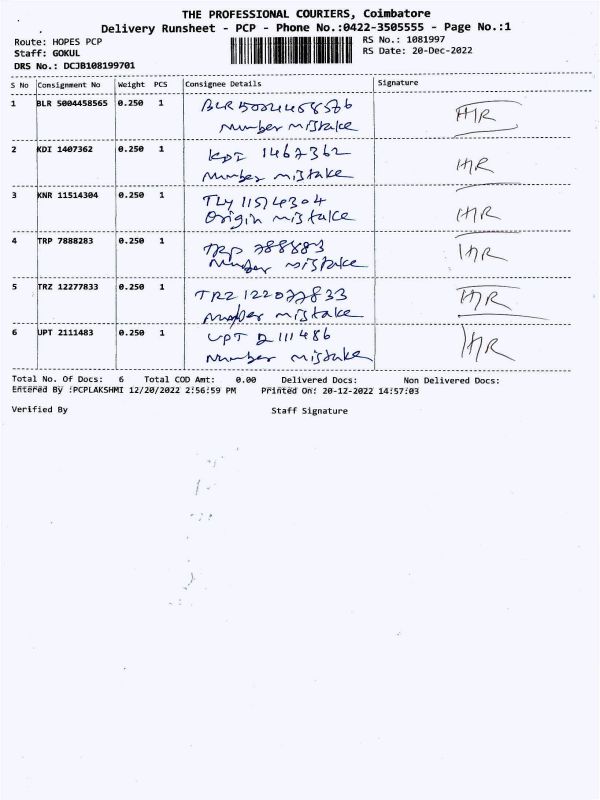 THE PROFESSIONAL COURIERS, Coimbatore
Delivery Runsheet - PCP - Phone No.:0422-3505555 - Page No.:1
Route: HOPES PCP
RS No.: 1081997
Staff: GOKUL
RS Date: 20-Dec-2022
DRS No.: DCJB108199701
S No Consignment No Weight PCS Consignee Details Signature
1 BLR 5004458565 0.250 1 BLR 5004458566 HR
Number mistake
2 KDI 1407362 0.250 1 KDI 1467362 HR
Number mistake
3 KNR 11514304 0.250 1 TLY 11514304 HR
Origin mistake
4 TRP 7888283 0.250 1 TRP 788883 HR
Number mistake
5 TRZ 12277833 0.250 1 TRZ 122077833 HR
Number mistake
6 UPT 2111483 0.250 1 UPT 2111486 HR
Number mistake
Total No. Of Docs: 6 Total COD Amt: 0.00 Delivered Docs: Non Delivered Docs:
Entered By :PCPLAKSHMI 12/20/2022 2:56:59 PM Printed On: 20-12-2022 14:57:03
Verified By Staff Signature